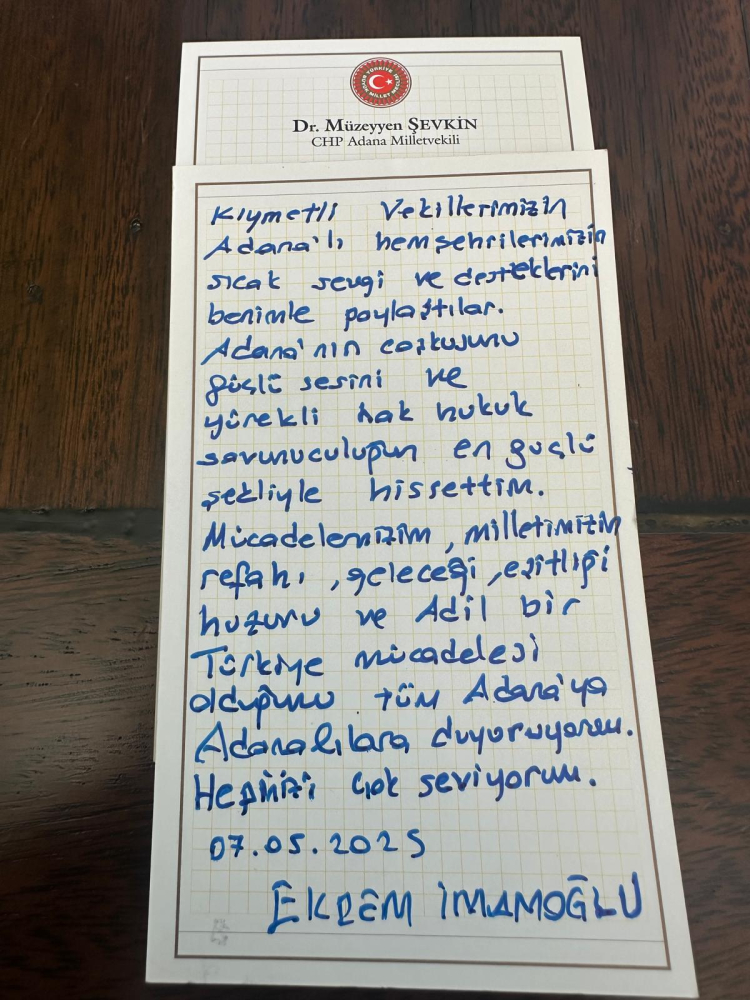 TÜRKİYE BÜYÜK MİLLET MECLİSİ
Dr. Müzeyyen ŞEVKİN
CHP Adana Milletvekili
Kıymetli Vekillerimizin
Adana'lı hemşehrilerimizin
sıcak sevgi ve desteklerini
benimle paylaştılar.
Adana'nın coşkusunu
güçlü sesini ve
yürekli hak hukuk
savunuculuğun en güçlü
şekliyle hissettim.
Mücadelemizin, milletimizin
refahı, geleceği, eşitliği
huzuru ve Adil bir
Türkiye mücadelesi
olduğunu tüm Adana'ya
Adanalılara duyuruyorum.
Hepinizi çok seviyorum.
07.05.2025
EKREM İMAMOĞLU